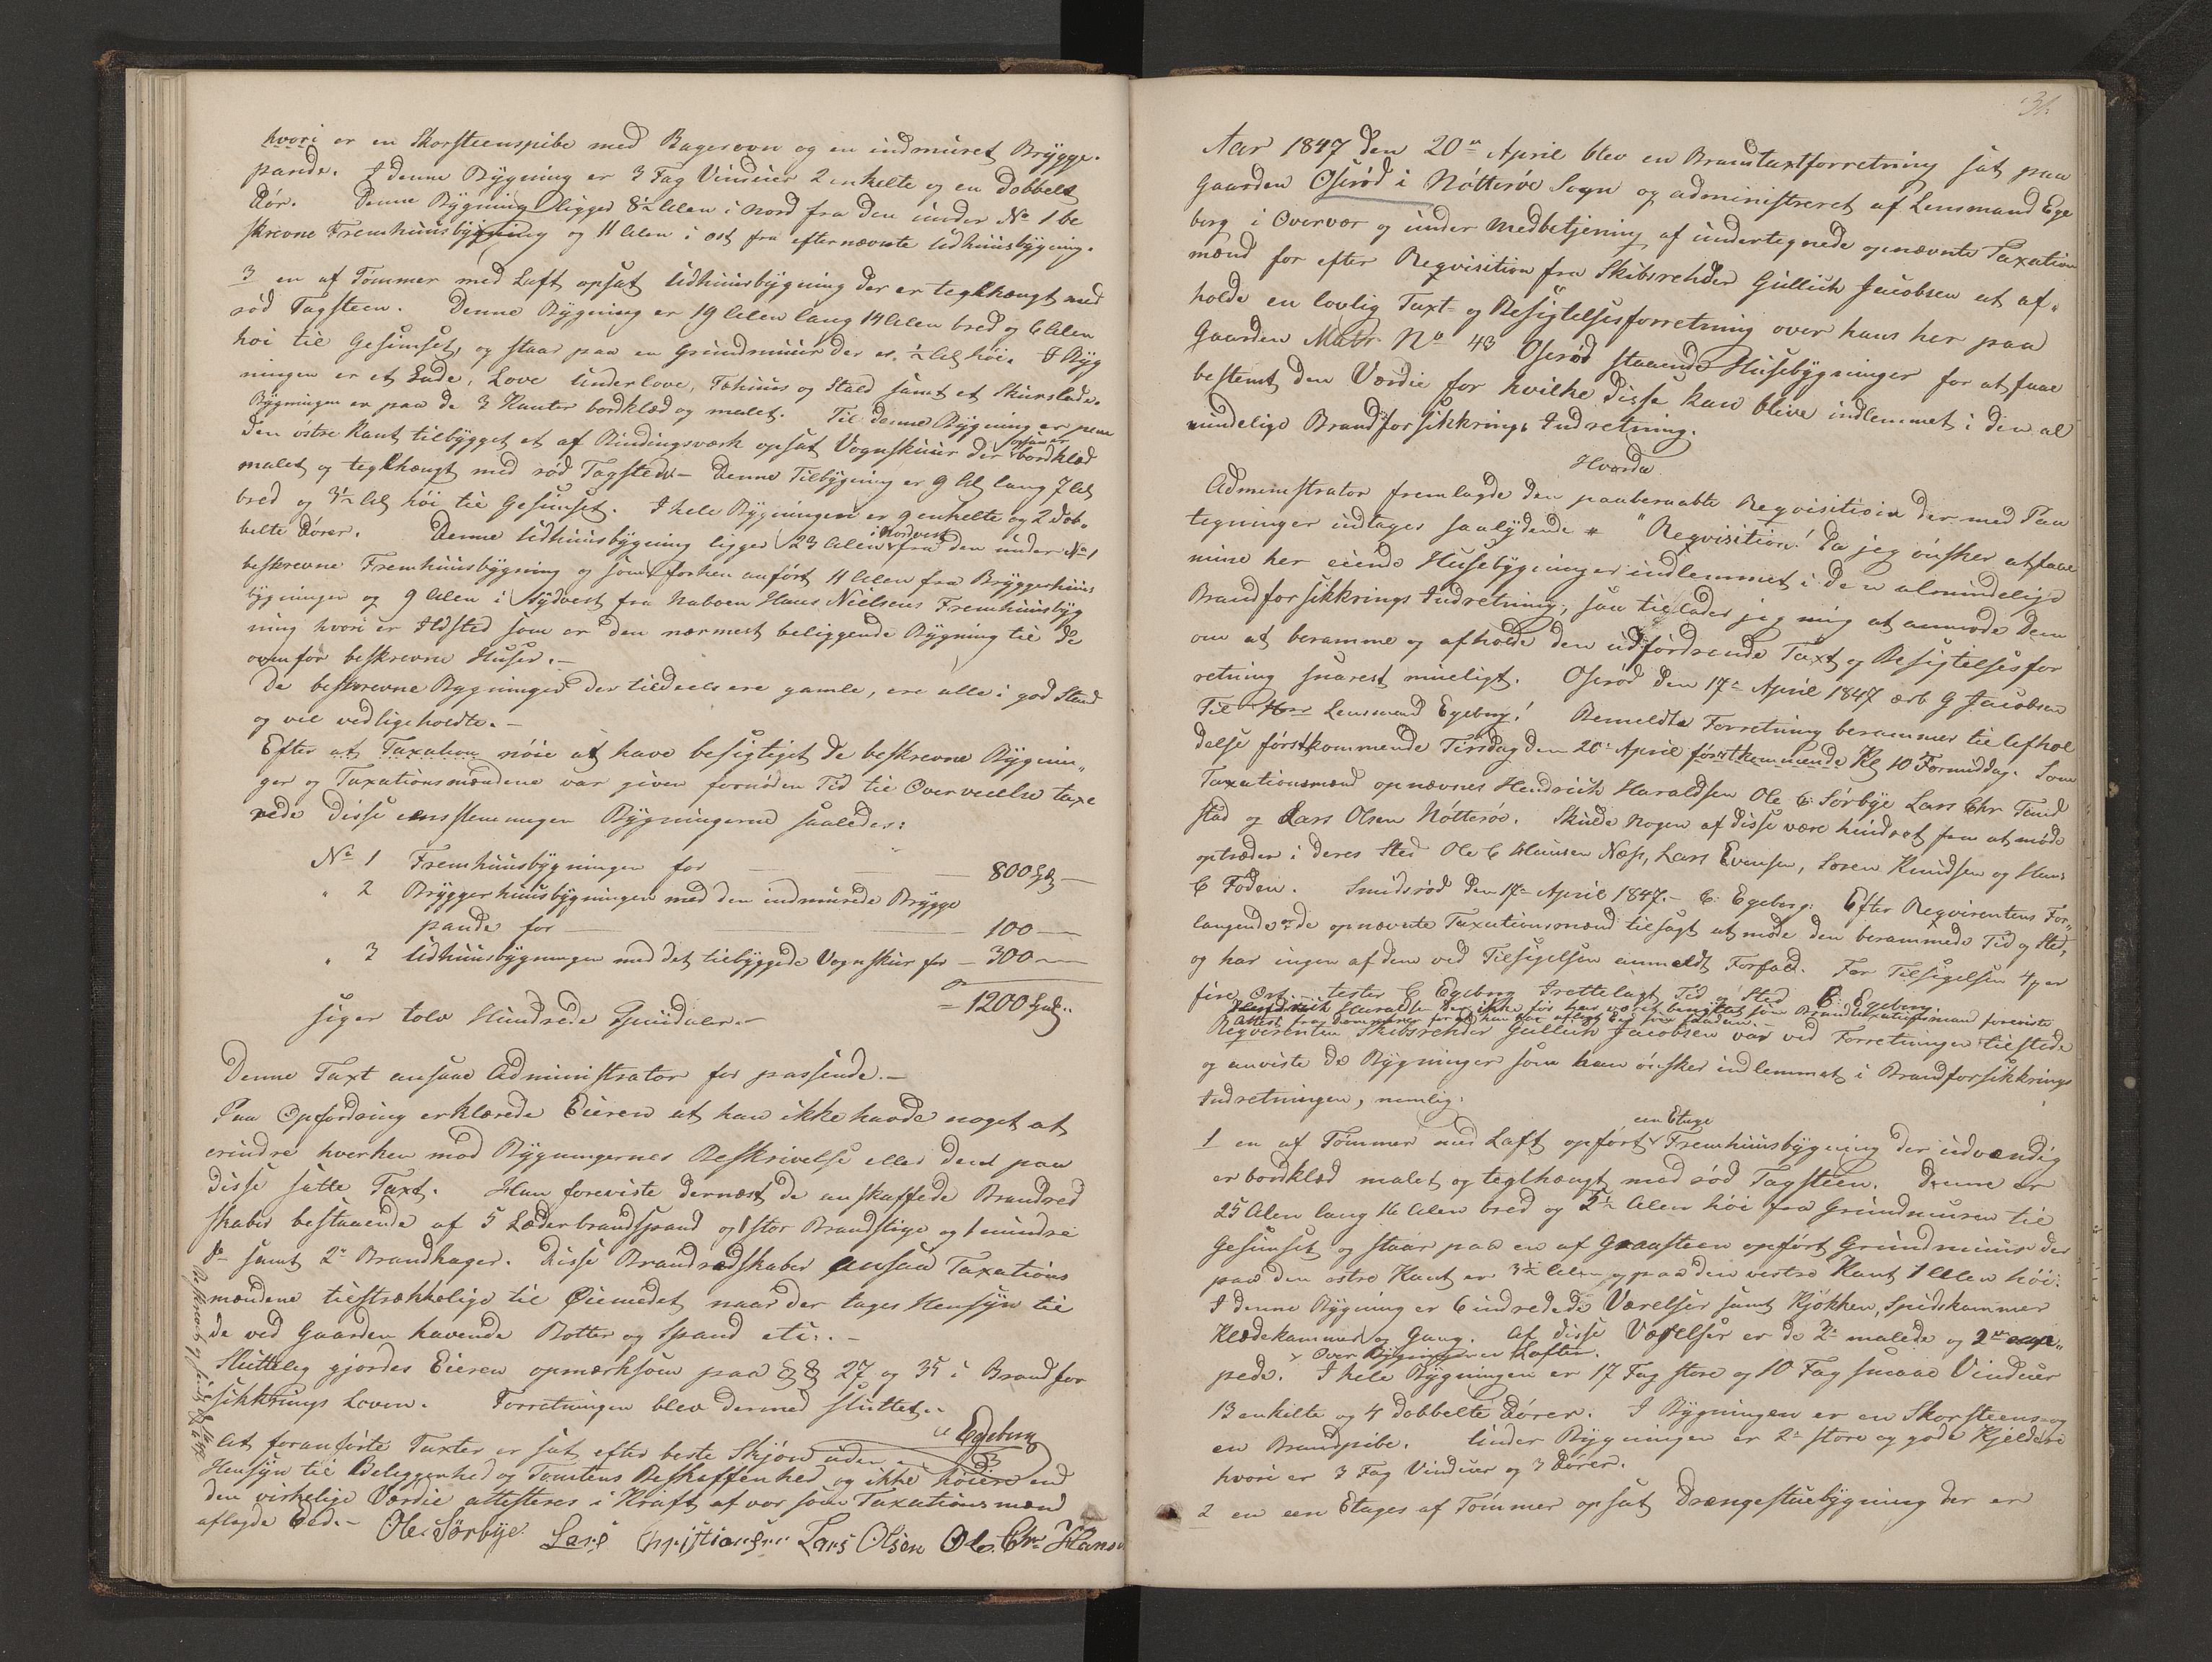 hvori er en Skorsteenspibe med Bagerovn og en indmuret Brygge-
pande. I denne Bygning er 3 Fag Vinduer 2 enkelte og en dobbelt
Dør. Denne Bygning ligger 8½ Alen i Nord fra den under No 1 be
skrevne Fremhuusbygning og 11 Alen i ost fra efternævnte Udhuusbygning.
3 en af Tømmer med Laft opsat Udhuusbygning der er teglhængt med
rød Tagsteen. Denne Bygning er 19 Alen lang 14 Alen bred og 6 Alen
høi til Gesimset, og staar paa en Grundmuur der er ½ Al høi. I Byg
ningen er et Lade, Love Underlove, Fæhuus og Stald samt et Skurslade.
Bygningen er paa de 3 Kanter bordklæd og malet. Til denne Bygning er paa
den østre Kant tilbygget et af Bindingsværk opsat Vognskuur der bordklæd
malet og teglhængt med rød Tagsteen - Denne Tilbygning er 9 Al lang 7 Al
bred og 3½ Al høi til Gesimset. I hele Bygningen er 9 enkelte og 2 dob-
belte Dører. Denne Udhuusbygning ligger 23 Alen i Nordvest fra den under No 1
beskrevne Fremhuusbygning og som forhen anført 11 Alen fra Bryggerhuus
bygningen og 9 Alen i Sydvest fra Naboen Hans Nielsens Fremhuusbyg
ning hvori er Ildsted som er den nærmest beliggende Bygning til de
ovenfor beskrevne Huse. -
De beskrevne Bygninger der tildeels ere gamle, ere alle i god Stand
og vel vedligeholdte. -
Efter at Taxation nøie at have besigtiget de beskrevne Bygnin-
ger og Taxationsmændene var given fornøden Tid til Overveielse taxe
rede disse eensstemmigen Bygningerne saaledes:
No 1 Fremhuusbygningen for 800 Spd
" 2 Bryggerhuusbygningen med den indmurede Brygge
pande for 100
" 3 Udhuusbygningen med det tilbyggede Vognskur for 300
= 1200 Spd..
siger tolv Hundrede Speciedaler. -
Denne Taxt ansaae Administrator for passende. -
Paa Opfordring erklærede Eieren at han ikke havde noget at
erindre hverken mod Bygningernes Beskrivelse eller den paa
disse satte Taxt. Han foreviste dernæst de anskaffede Brandred
skaber bestaaende af 5 Læderbrandspand og 1 stor Brandstige og 1 mindre
do samt 2de Brandhager. Disse Brandredskaber ansaae Taxations
mændene tilstrækkelige til Øiemedet naar der tages Hensyn til
de ved Gaarden havende Bøtter og Spand etc. -
Sluttelig gjordes Eieren opmærksom paa §§ 27 og 35 i Brandfor
sikkrings Loven. Forretningen blev dermed sluttet. -
Egeberg
At foranførte Taxter er sat efter beste Skjøn uden
Hensyn til Beliggenhed og Tomtens Beskaffenhed og ikke høiere end
den virkelige Værdie attesteres i Kraft af vor som Taxationsmænd
aflagde Eed. - Ole Sørbye. Lars Christiansen Lars Olsen Ole Chr Hansen
Aar 1847 den 20de April blev en Brandtaxtforretning sat paa
Gaarden Oserød i Nøtterøe Sogn og administreret af Lensmand Ege
berg i Overvær og under Medbetjening af undertegnede opnævnte Taxations
mænd for efter Reqvisition fra Skibsrehder Gullich Jacobsen at af-
holde en lovlig Taxt- og Besigtelsesforretning over hans her paa
Gaarden Matr No 43 Oserød staaende Husebygninger for at faae
bestemt den Værdie for hvilke disse kan blive indlemmet i den al
mindelige Brandforsikkrings Indretning.
Hvorda
Administrator fremlagde den paaberaabte Reqvisition der med Paa
tegninger indtages saalydende " "Reqvisition! Da jeg ønsker at faae
mine her eiende Husebygninger indlemmet i den almindelige
Brandforsikkrings Indretning, saa tillader jeg mig at anmode Dem
om at beramme og afholde den udfordrende Taxt og Besigtelsesfor
retning snarest mueligt. Oserød den 17de April 1847 ærb G Jacobsen
Til Hrr Lensmand Egeberg! Bemeldte Forretning berammes til Afhol
delse førstkommende Tirsdag den 20de April førstkommende Kl 10 Formiddag. Som
Taxationsmænd opnævnes Hendrich Haraldsen Ole C. Sørbye Lars Chr. Tand
stad og Lars Olsen Nøtterøe. Skulde nogen af disse være hindret fra at møde
optræder i deres Sted Ole C Hansen Næs, Lars Evensen, Søren Knudsen og Hans
C Foden. Smidsrød den 17de April 1847. - C. Egeberg: Efter Reqvirentens For-
langende er de opnævnte Taxationsmænd tilsagt at møde den berammede Tid og Sted,
og har ingen af dem ved Tilsigelsen anmeldt Forfald. For Tilsigelsen 4 er
fire Ort. tester C Egeberg Irettelagt Tid og Sted C. Egeberg
Hendrich Haraldsen der ikke før har været benyttet som Brandtaxationsmand foreviste
Attest for at han har aflagt Eed
Reqvirenten Skibsrehder Gullich Jacobsen var ved Forretningen tilstede
og anviste de Bygninger som han ønsker indlemmet i Brandforsikkrings
Indretningen, nemlig:
een Etage
1 en af Tømmer med Laft opført Fremhuusbygning der udvendig
er bordklæd malet og teglhængt med rød Tagsteen. Denne er
25 Alen lang 16 Alen bred og 5½ Alen høi fra Grundmuren til
Gesimset og staar paa en af Graasteen opført Grundmuur der
paa den østre Kant er 3½ Alen og paa den vestre Kant 1 Alen høi.
I denne Bygning er 6 indredede Værelser samt Kjøkken, Spidskammer
Klædekammer og Gang. Af disse Værelser er de 2de malede og 2de
Over Bygningen er Loften.
pede. I hele Bygningen er 17 Fag store og 10 Fag smaae Vinduer
13 enkelte og 4 dobbelte Dører. I Bygningen er en Skorsteens- og
en Brandpibe. Under Bygningen er 2de store og gode Kjeldere
hvori er 3 Fag Vinduer og 3 Dører.
2 en een Etages af Tømmer opsat Drængestuebygning der er